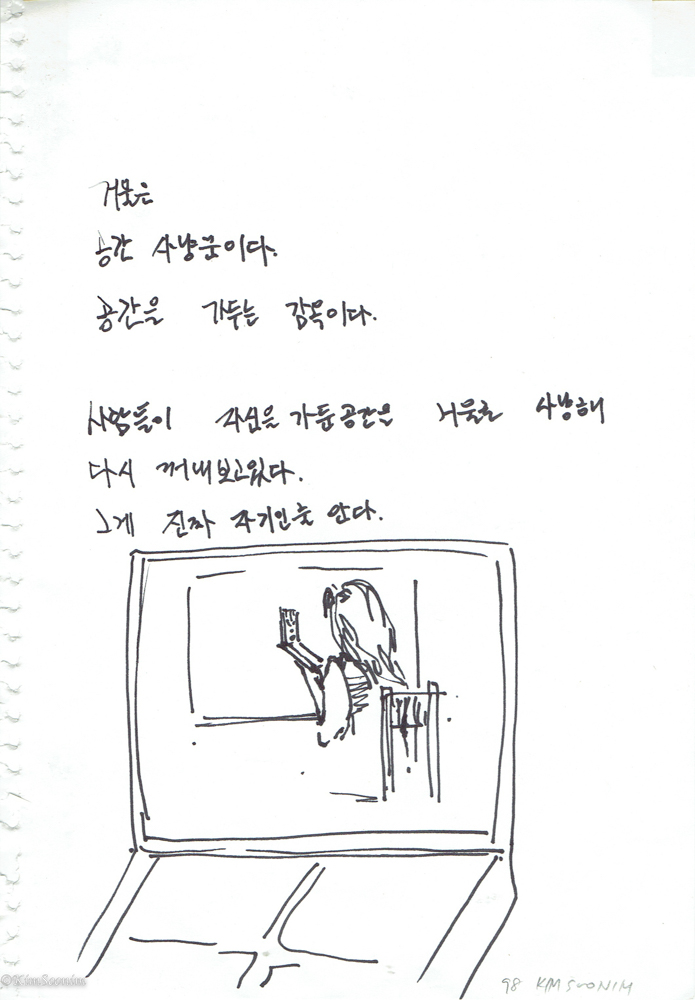 거울은
공간 사냥꾼이다.
공간을 가두는 감옥이다.
사람들이 자신을 가둔공간을 거울로 사냥해
다시 꺼내보고있다.
그게 진짜 자기인줄 안다.
98 KIM SOONIM
©KimSoonim